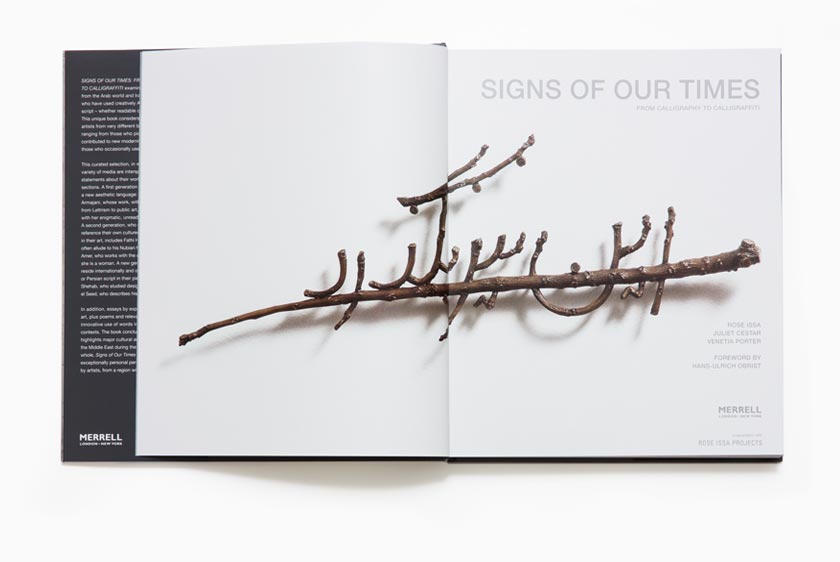 SIGNS OF OUR TIMES: FR
TO CALLIGRAFFITI examin
from the Arab world and Ira
who have used creatively A
script – whether readable o
This unique book consider
artists from very different b
ranging from those who pio
contributed to new modern
those who occasionally use
This curated selection, in w
variety of media are intersp
statements about their wor
sections. A first generation
a new aesthetic language
Armajani, whose work, with
from Lettrism to public art,
with her enigmatic, unread
A second generation, who
reference their own culture
in their art, includes Fathi H
often allude to his Nubian h
Amer, who works with the
she is a woman. A new gen
reside internationally and o
or Persian script in their pa
Shehab, who studied desig
el Seed, who describes his
In addition, essays by expe
art, plus poems and releva
innovative use of words in
contexts. The book conclu
highlights major cultural a
the Middle East during the
whole, Signs of Our Times
exceptionally personal per
by artists, from a region w
MERRELL
LONDON · NEW YORK
SIGNS OF OUR TIMES
FROM CALLIGRAPHY TO CALLIGRAFFITI
ROSE ISSA
JULIET CESTAR
VENETIA PORTER
FOREWORD BY
HANS-ULRICH OBRIST
MERRELL
LONDON · NEW YORK
ROSE ISSA PROJECTS